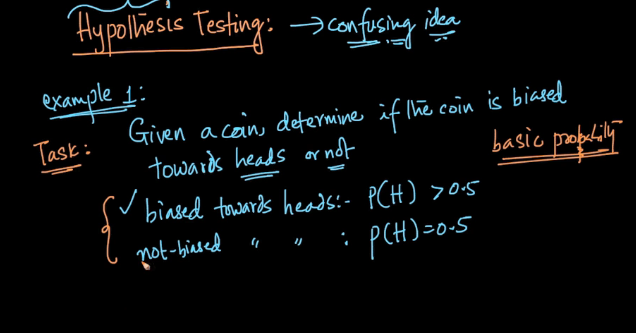 Hypothesis Testing: → confusing idea
example 1:
Task: Given a coin, determine if the coin is biased
towards heads or not
basic probability
✓ biased towards heads:- P(H) > 0.5
not-biased " " : P(H) = 0.5